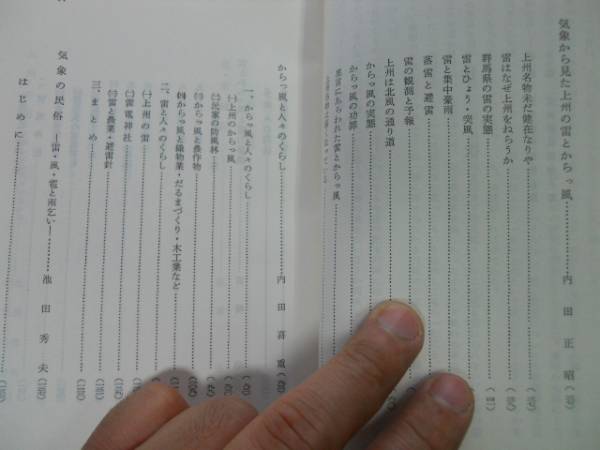 気象から見た上州の雷とからっ風……内田正昭
上州名物未だ健在なりや
雷はなぜ上州をねらうか
群馬県の雷の実態
雷とひょう・突風
雷と集中豪雨
落雷と避雷
雷の観測と予報
上州は北風の通り道
からっ風の実態
からっ風の功罪
にあらわれた雷とからっ風
からっ風と人々のくらし……内田喜重
一、からっ風と人々のくらし
㈠上州のからっ風
㈡民家の防風林
㈢からっ風と農作物
㈣からっ風と織物業・だるまづくり・木工業など
二、雷と人々のくらし
㈠上州の雷
㈡雷電神社
㈢雷と農業・避雷針
三、まとめ
気象の民俗 ―雷・風・雹と雨乞い―……池田秀夫
はじめに